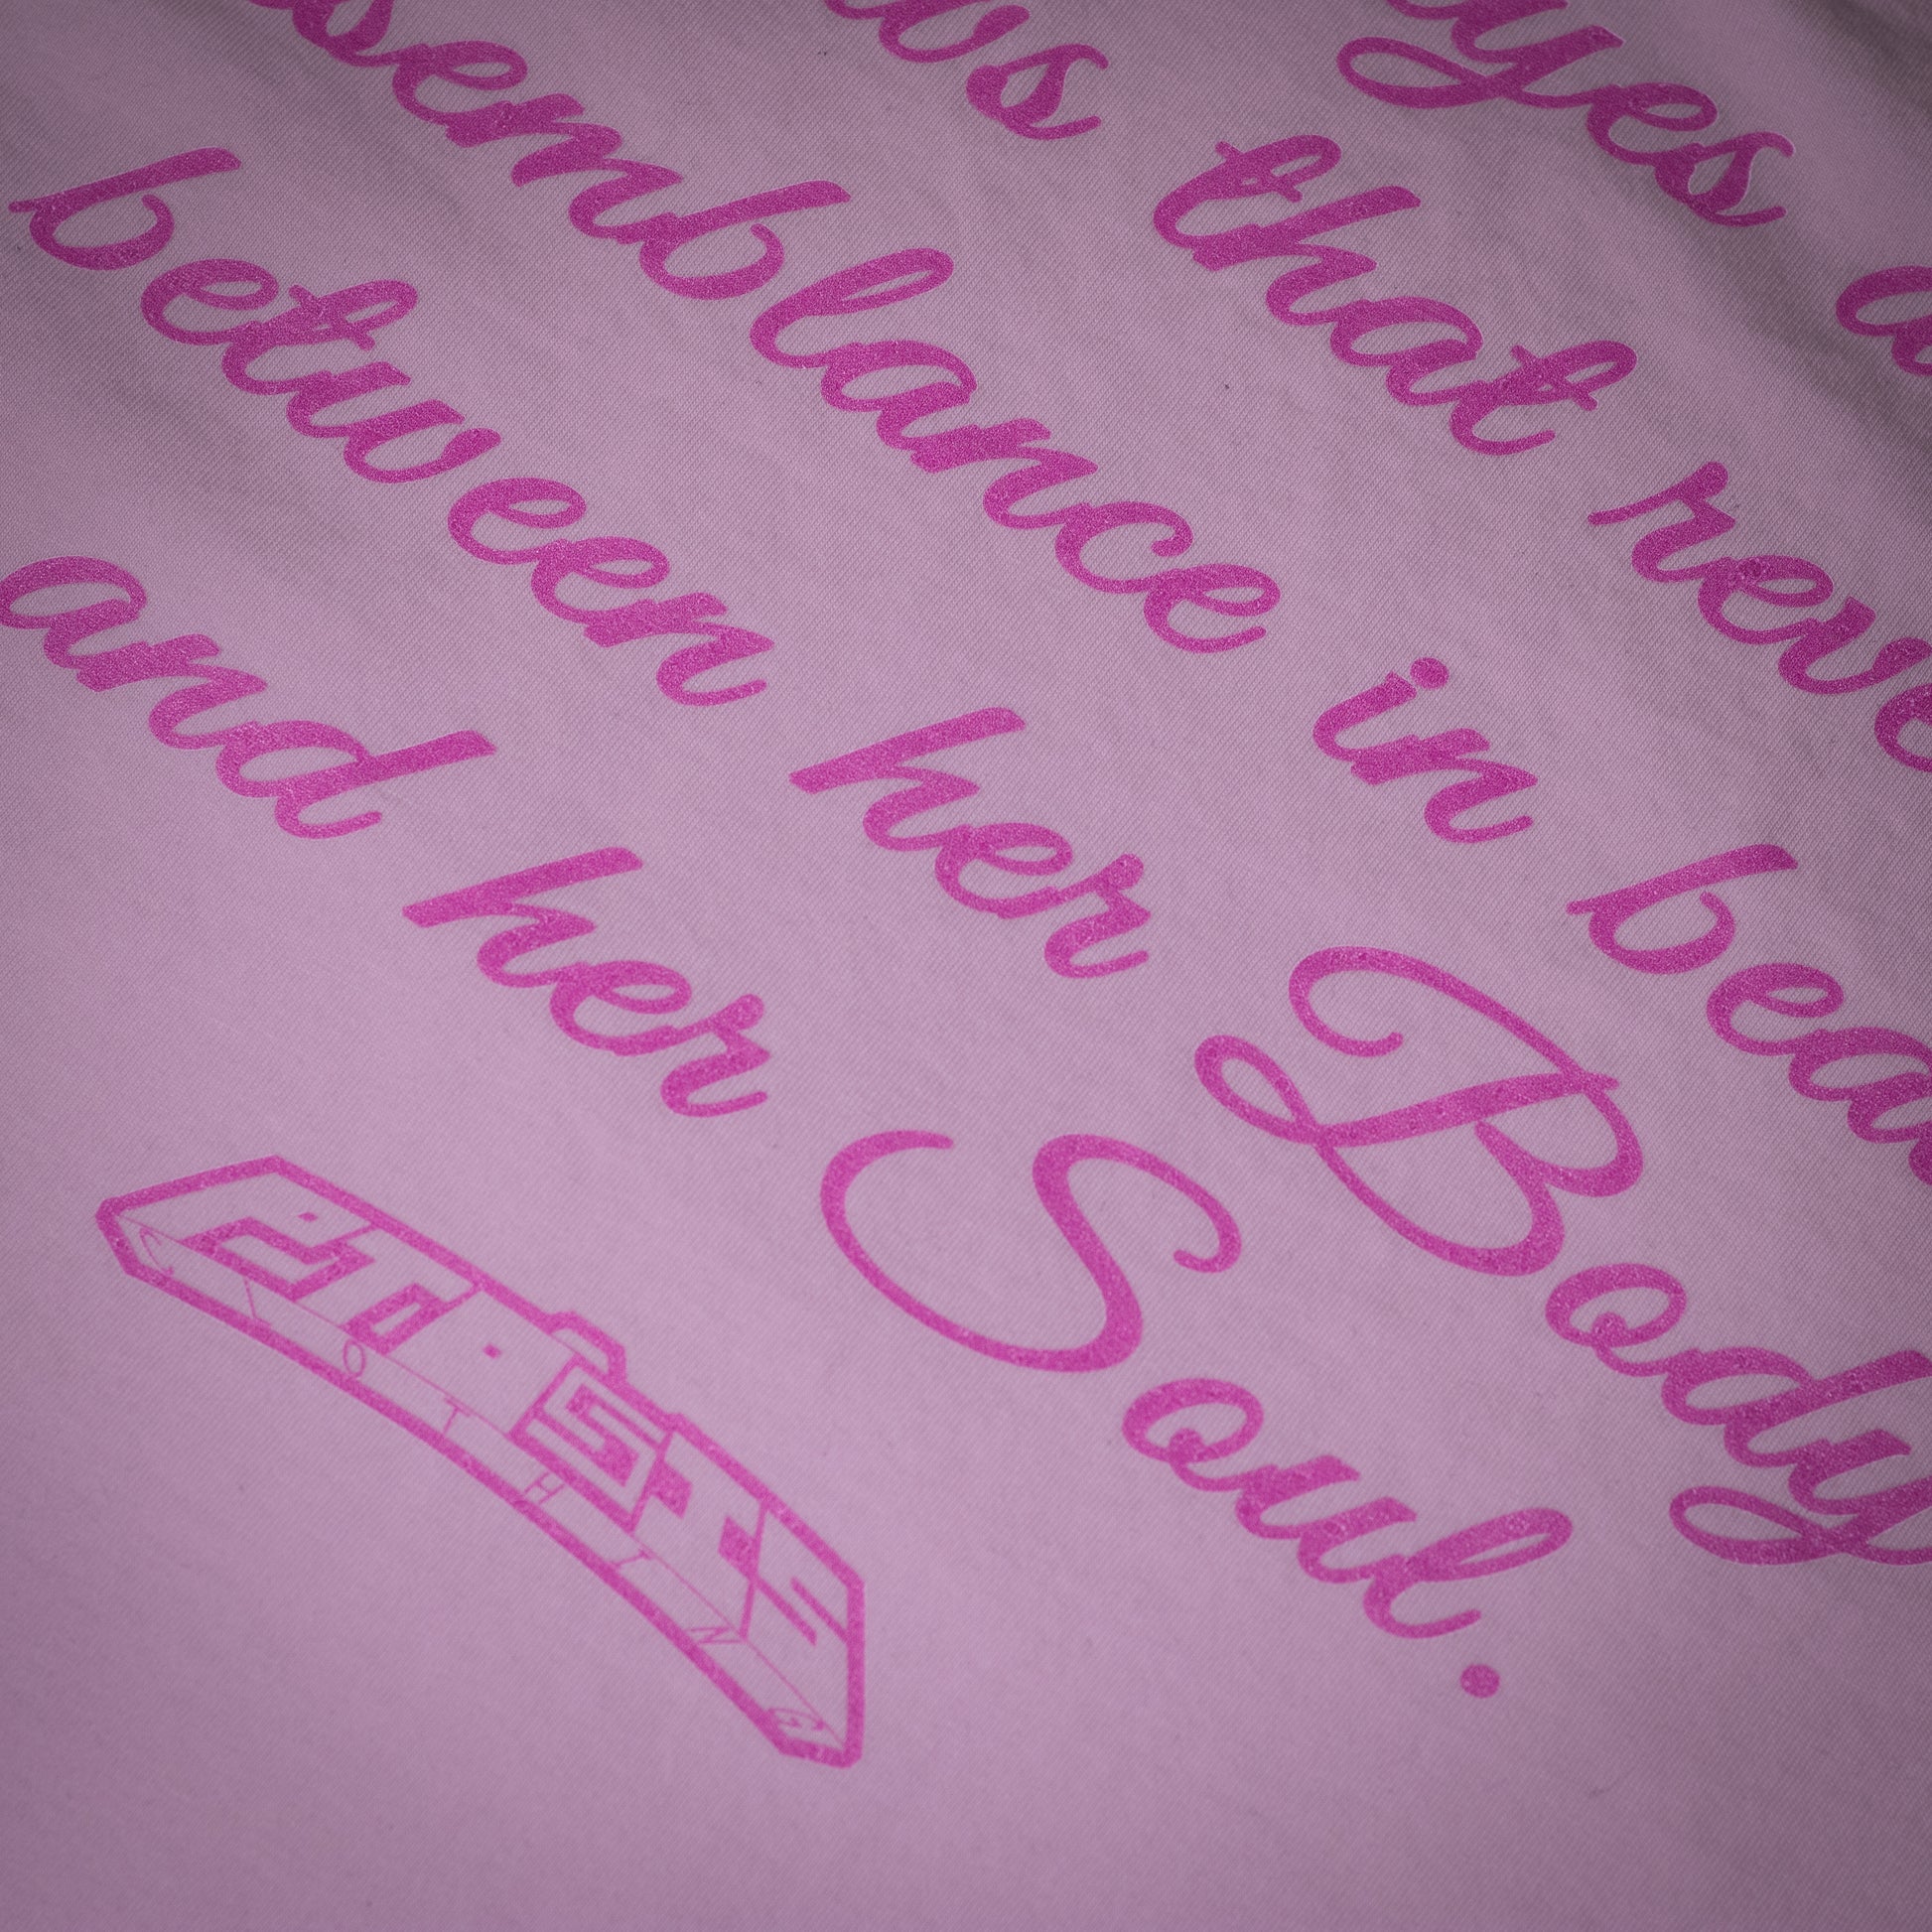 yes a
ws that reve
semblance in beau
between her Body
and her Soul.
CLOTHING